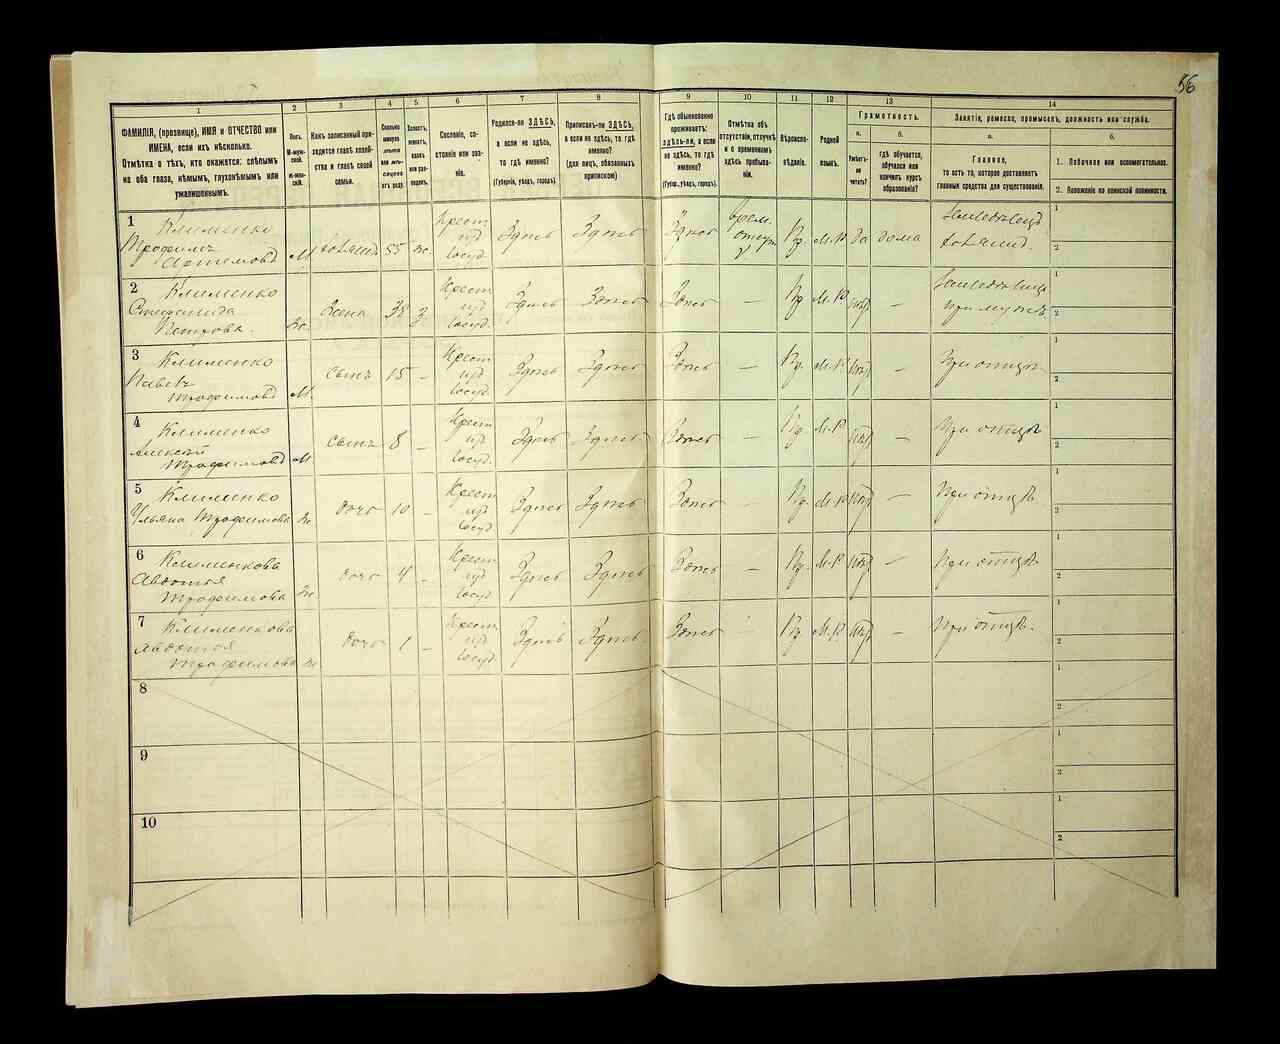 56
1
2
3
4
5
6
7
8
9
10
11
12
13
14
ФАМИЛІЯ, (прозвище), ИМЯ и ОТЧЕСТВО или
ИМЕНА, если ихъ нѣсколько.
Отмѣтка о тѣхъ, кто окажется: слѣпымъ
на оба глаза, нѣмымъ, глухонѣмымъ или
умалишеннымъ.
Полъ.
М-муж-
ской.
Ж-жен-
скій.
Какъ записанный при-
ходится главѣ хозяй-
ства и главѣ своей
семьи.
Сколько
минуло
лѣтъ
или мѣ-
сяцевъ
отъ роду.
Холостъ,
женатъ,
вдовъ
или раз-
веденъ.
Сословіе, со-
стояніе или зва-
ніе.
Родился-ли ЗДѢСЬ,
а если не здѣсь,
то гдѣ именно?
(Губернія, уѣздъ, городъ).
Приписанъ-ли ЗДѢСЬ,
а если не здѣсь, то гдѣ
именно?
(для лицъ, обязанныхъ
припискою)
Гдѣ обыкновенно
проживаетъ:
здѣсь-ли, а если
не здѣсь, то гдѣ
именно?
(Губер., уѣздъ, городъ).
Отмѣтка объ
отсутствіи, отлучкѣ
и о временномъ
здѣсь пребыва-
ніи.
Вѣроиспо-
вѣданіе.
Родной
языкъ.
Грамотность.
а.
Умѣетъ-
ли
читать?
б.
гдѣ обучается,
обучался или
кончилъ курсъ
образованія?
Занятіе, ремесло, промыселъ, должность или служба.
а.
Главное,
то есть то, которое доставляетъ
главныя средства для существованія.
б.
1. Побочное или вспомогательное.
2. Положеніе по воинской повинности.
1 Клименко
Трофимъ
Артемовъ
М хозяинъ 55 ж. Крест из Госуд. Здѣсь Здѣсь Здѣсь врем. отсут Пр. М-Р да дома Земледѣлецъ хозяинъ.
1
2
2 Клименко
Степанида
Петрова.
Ж. жена 38 З. Крест из Госуд. Здѣсь Здѣсь Здѣсь — Пр М-Р нѣт — Земледѣлица при мужѣ.
1
2
3 Клименко
Павелъ
Трофимовъ
М. сынъ 15 — Крест из Госуд. Здѣсь Здѣсь Здѣсь — Пр. М-Р нѣт — При отцѣ
1
2
4 Клименко
Алексѣй
Трофимовъ
М сынъ 8 — Крест из Госуд. Здѣсь Здѣсь Здѣсь — Пр. М-Р нѣт — При отцѣ
1
2
5 Клименко
Ульяна Трофимова
Ж дочь 10 — Крест из Госуд. Здѣсь Здѣсь Здѣсь — Пр. М-Р нѣт — При отцѣ
1
2
6 Клименкова
Авдотья
Трофимова
Ж дочь 4 — Крест из Госуд. Здѣсь Здѣсь Здѣсь — Пр. М-Р нѣт — При отцѣ
1
2
7 Клименкова
Авдотья
Трофимова
Ж дочь 1 — Крест из Госуд. Здѣсь Здѣсь Здѣсь — Пр М-Р. нѣт — При отцѣ.
1
2
8
1
2
9
1
2
10
1
2